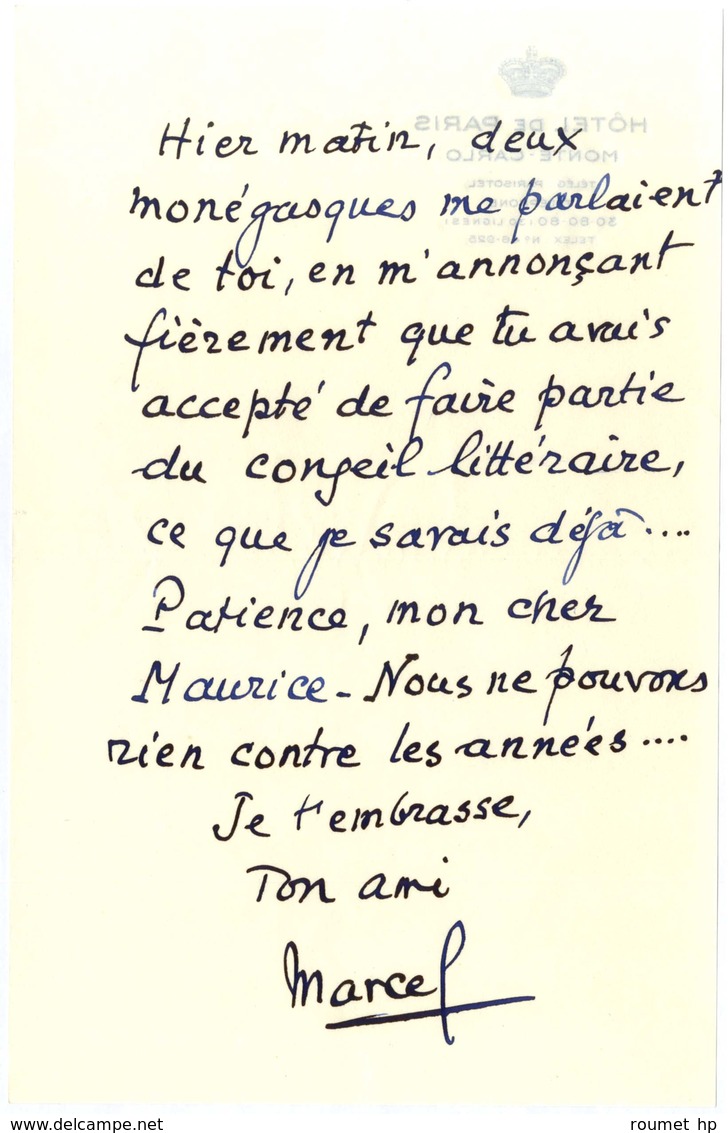 HÔTEL DE PARIS
MONTE-CARLO
Hier matin, deux
monégasques me parlaient
de toi, en m'annonçant
fièrement que tu avais
accepté de faire partie
du conseil littéraire,
ce que je savais déjà....
Patience, mon cher
Maurice - Nous ne pouvons
rien contre les années....
Je t'embrasse,
Ton ami
Marcel
www.delcampe.net
roumet hp